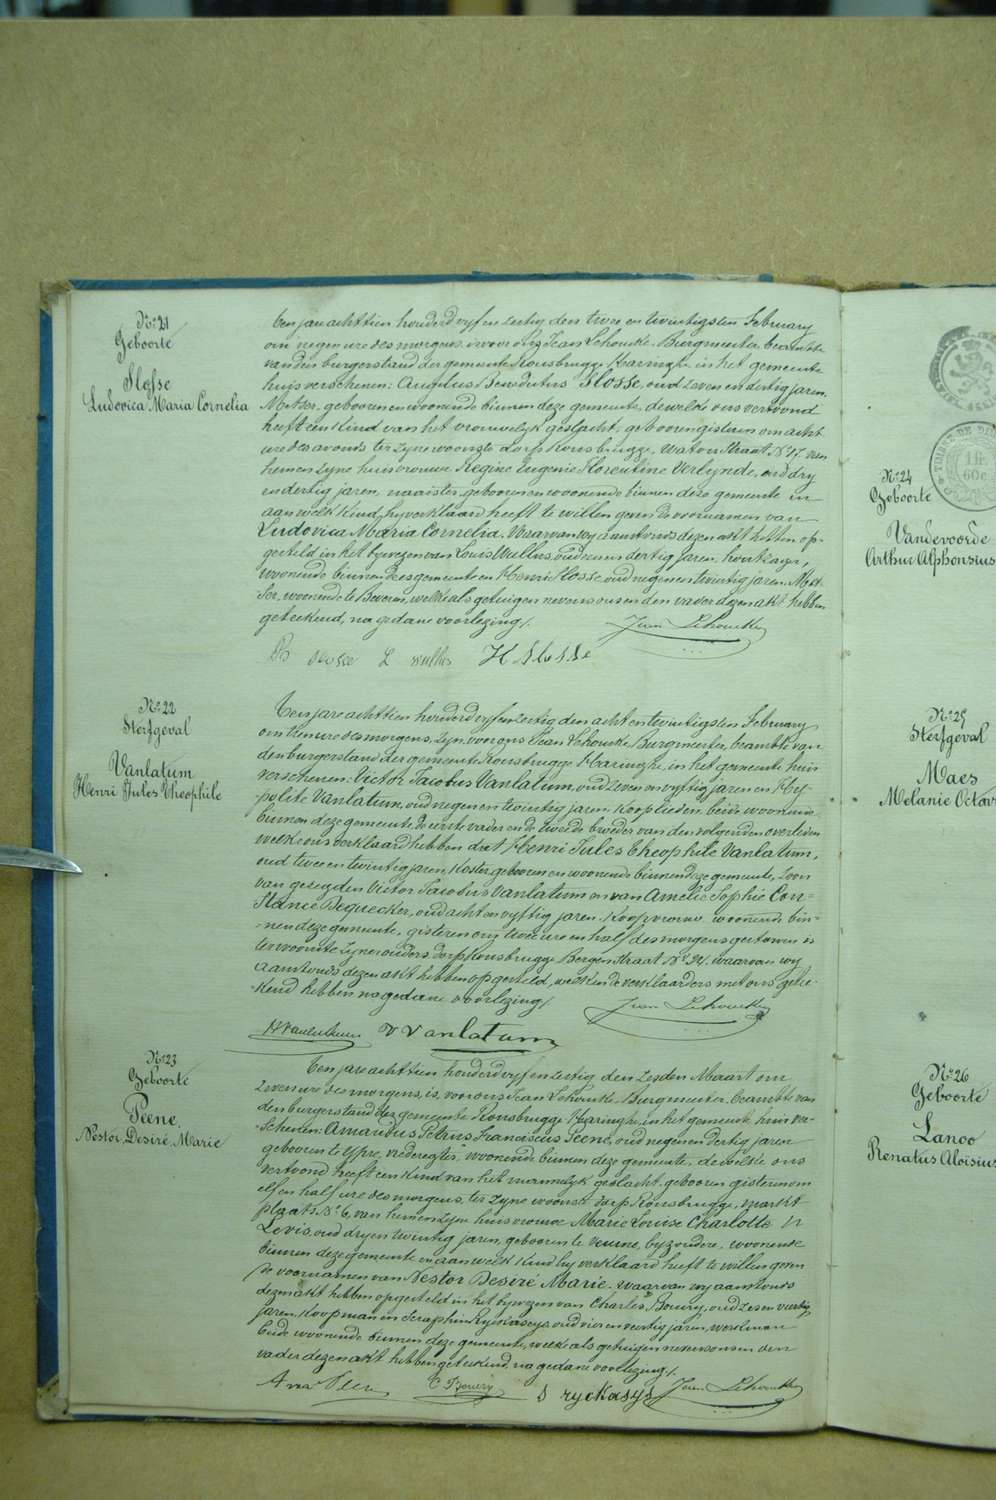 Nº 21
Geboorte
Slosse
Ludovica Maria Cornelia
Ten jare achttien honderd vyf en zestig den twee en twintigsten February
om negen ure des morgens, is voor ons Jean Lehoucke Burgmeester, beambte
van den burgerstand der gemeente Rousbrugge Haringhe, in het gemeente
huis verschenen: Augustus Benedictus Slosse, oud zeven en dertig jaren,
Metser, geboren en woonende binnen deze gemeente, dewelke ons vertoond
heeft een Kind van het vrouwelyk geslacht, geboren gisteren om acht
ure des avonds ter zyne woonste dorp Rousbrugge, Watou Straat Nº 17, van
hem en zyne huisvrouw Regine Eugenie Florentine Verlynde, oud dry
en dertig jaren, naaister, geboren en woonende binnen deze gemeente en
aan welk Kind hy verklaard heeft te willen geven de voornamen van
Ludovica Maria Cornelia. Waarvan wy aanstonds dezen akt hebben op-
gesteld in het bywezen van Louis Wullus, oud een en dertig jaren,
woonende binnen deze gemeente en Henri Slosse, oud negen en twintig jaren, Met-
ser, woonende te Beveren, welke als getuigen nevens ons en den vader dezen akt hebben
geteekend, na gedane voorlezing.
Jean Lehoucke
Slosse L wullus H Slosse
Nº 22
Sterfgeval
Vanlatum
Henri Jules Theophile
Ten jare achttien honderd vyf en zestig den acht en twintigsten February
om tien ure des morgens, zyn voor ons Jean Lehoucke Burgmeester, beambte van
den burgerstand der gemeente Rousbrugge Haringhe, in het gemeente huis
verschenen: Victor Jacobus Vanlatum, oud zeven en vyftig jaren en Hy-
polite Vanlatum, oud negen en twintig jaren, Kooplieden, beide woonende
binnen deze gemeente, de eerste vader en de tweede broeder van den volgenden overleden
welke ons verklaard hebben dat Henri Jules Theophile Vanlatum,
oud twee en twintig jaren, Koster, geboren en woonende binnen deze gemeente, Zoon
van gezegden Victor Jacobus Vanlatum en van Amelie Sophie Con-
stance Dequecker, oud acht en vyftig jaren, Koopvrouw, woonende bin-
nen deze gemeente, gisteren om twee ure en half des morgens gestorven is
ter woonste zyner ouders, dorp Rousbrugge Bergen straat Nº 24, waarvan wy
aanstonds dezen akt hebben opgesteld, welken de verklaarders met ons getee-
kend hebben na gedane voorlezing.
Jean Lehoucke
H Vanlatum V Vanlatum
Nº 23
Geboorte
Peene,
Nestor, Desiré, Marie
Ten jare achttien honderd vyf en zestig den zesden Maart om
zeven ure des morgens, is voor ons Jean Lehoucke Burgmeester, beambte van
den burgerstand der gemeente Rousbrugge Haringhe, in het gemeente huis ver-
schenen: Amandus Petrus Franciscus Peene, oud negen en dertig jaren
geboren te Ypre, vrederegter, woonende binnen deze gemeente, dewelke ons
vertoond heeft een Kind van het mannelyk geslacht, geboren gisteren om
elf en half ure des morgens, ter zyne woonst dorp Rousbrugge, markt
plaats Nº 6, van hem en zyne huisvrouw Marie Louise Charlotte
Levis, oud dry en twintig jaren, geboren te Veurne, byzondere, woonende
binnen deze gemeente en aan welk Kind hy verklaard heeft te willen geven
de voornamen van Nestor Desiré Marie. Waarvan wy aanstonds
dezen akt hebben opgesteld in het bywezen van Charles Bouvry, oud zes en veertig
jaren, Koopman en Seraphin Ryckaseys, oud vier en veertig jaren, werkman
beide woonende binnen deze gemeente, welke als getuigen nevens ons en den
vader dezen akt hebben geteekend, na gedane voorlezing.
C Bouvry S ryckasys Jean Lehoucke
Nº 24
Geboorte
Vandevoorde
Arthur Alphonsius
TIMBRE DE DI
1 fr.
60 c
Nº 25
Sterfgeval
Maes
Melanie Octav
Nº 26
Geboorte
Lanoo
Renatus Aloïsius